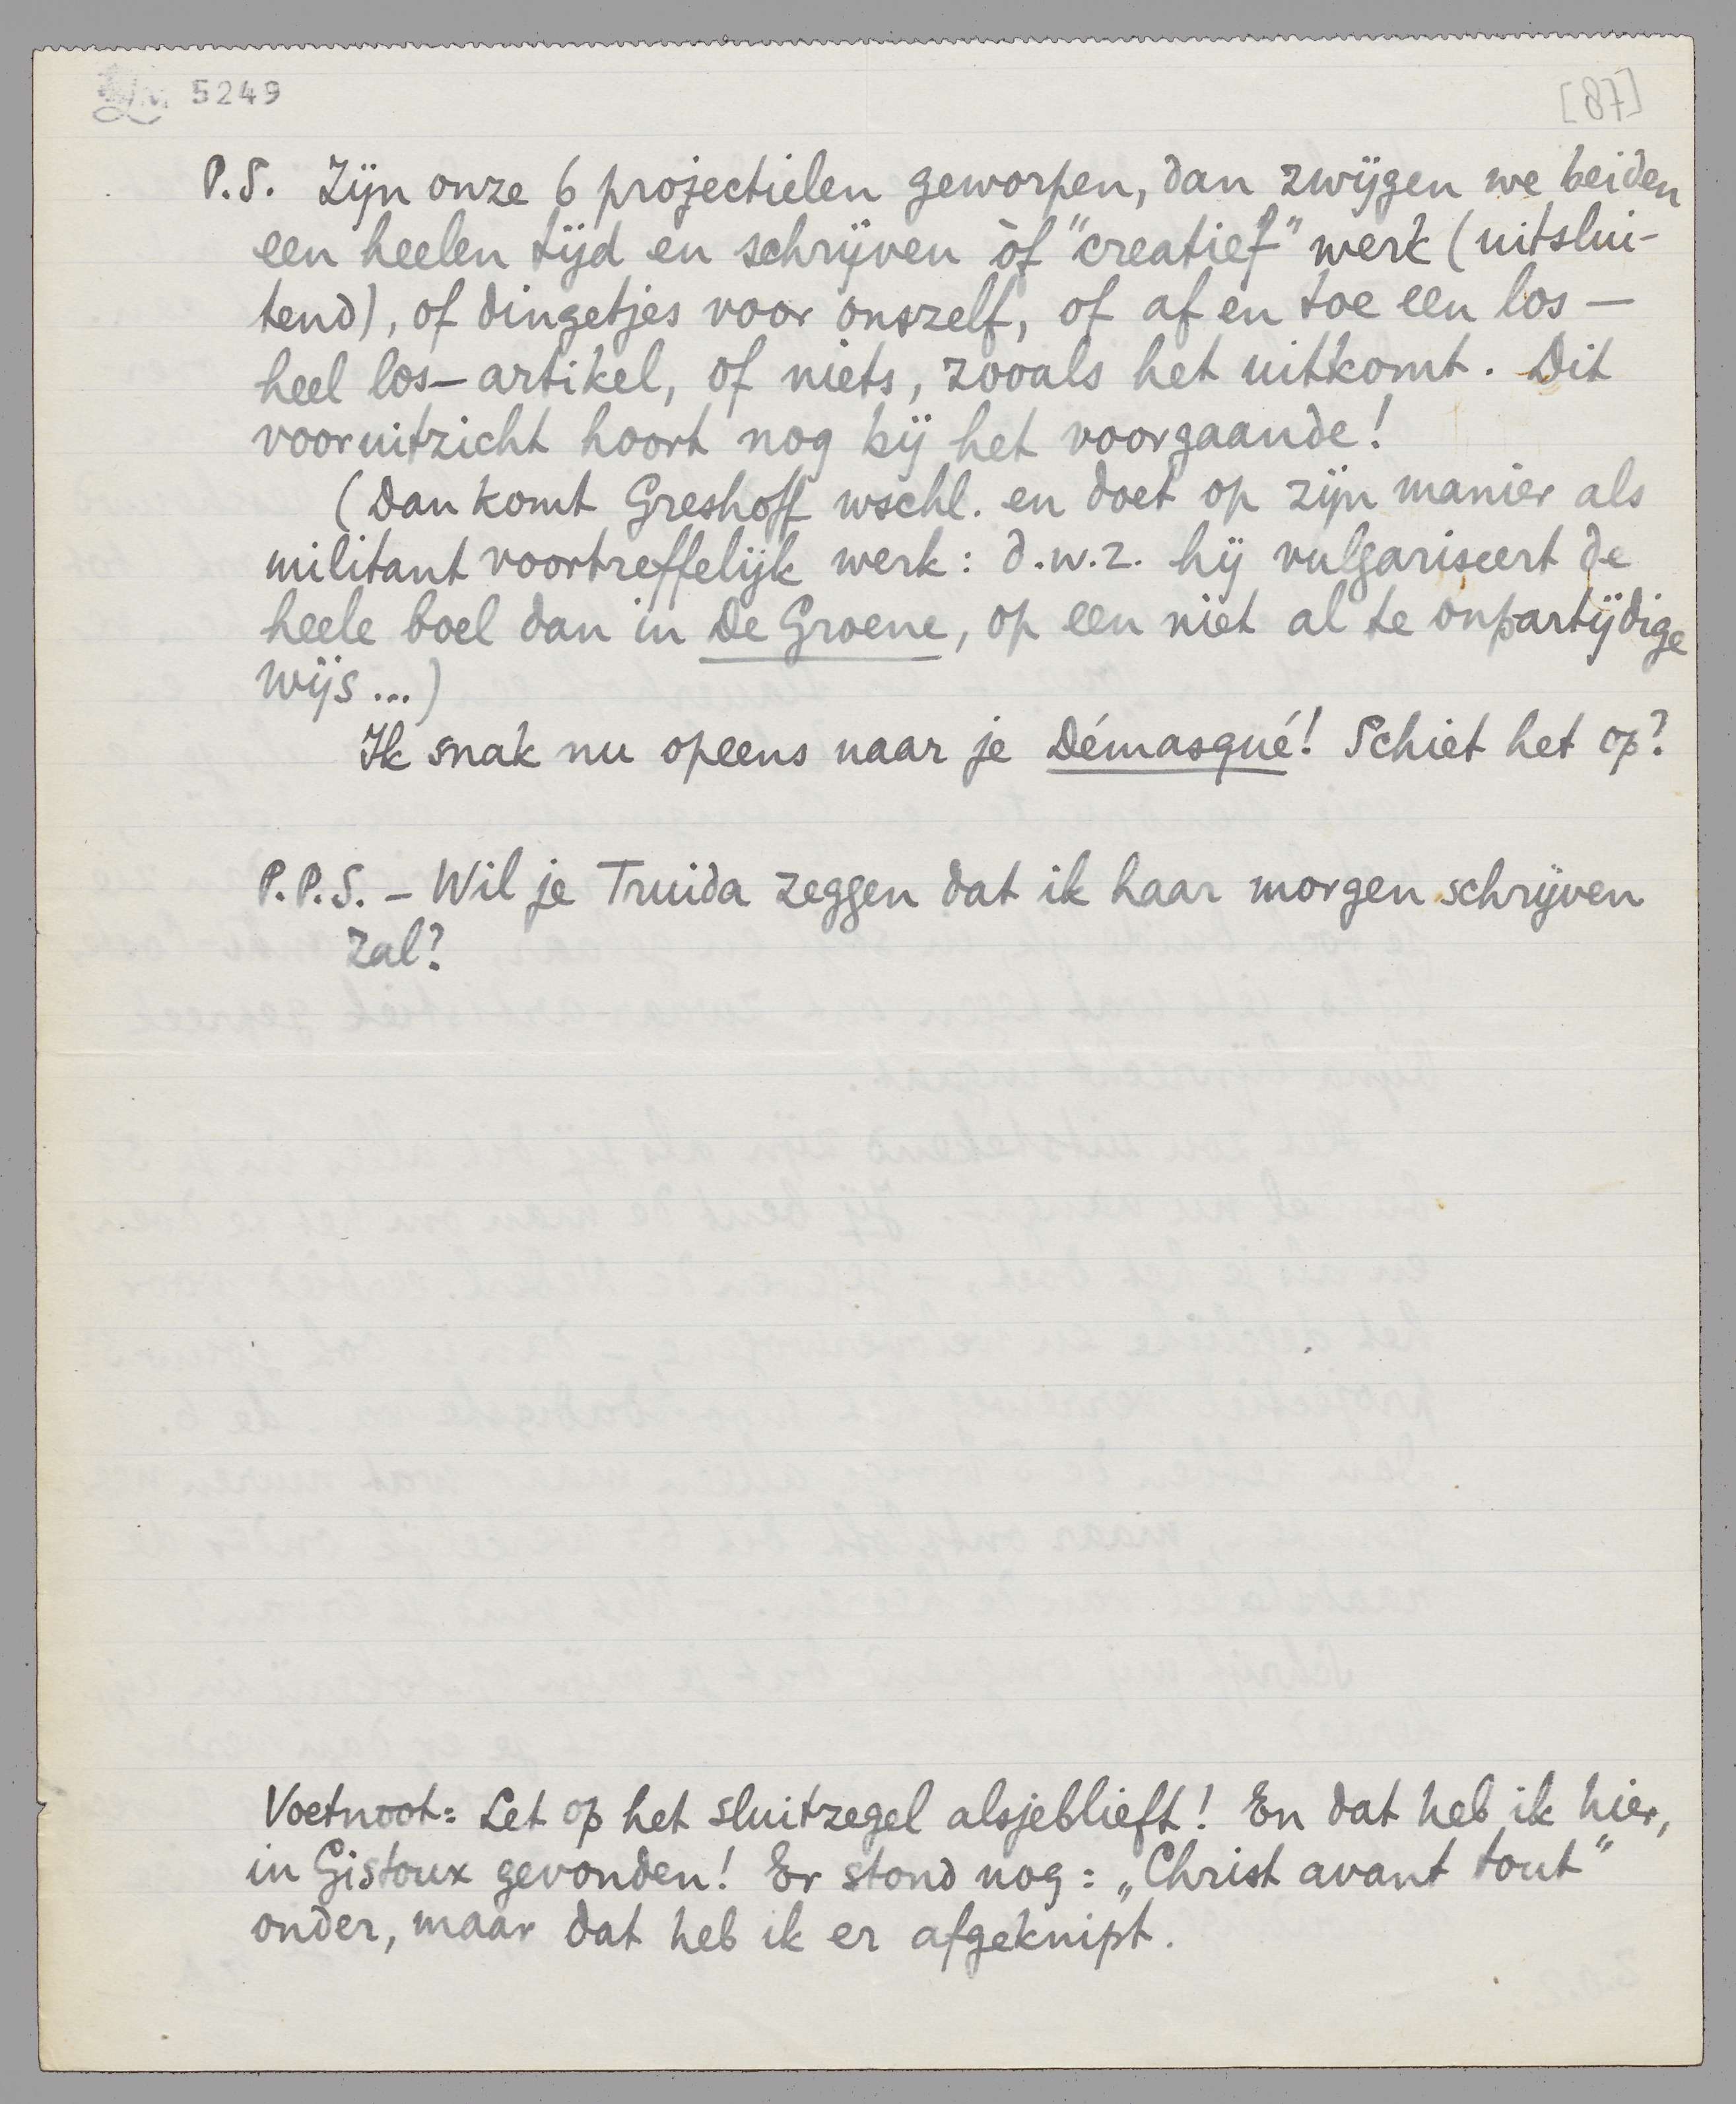 5249
[87]
P.S. Zijn onze 6 projectielen geworpen, dan zwijgen we beiden
een heelen tijd en schrijven òf "creatief" werk (uitslui-
tend), of dingetjes voor onszelf, of af en toe een los —
heel los — artikel, of niets, zooals het uitkomt. Dit
vooruitzicht hoort nog bij het voorgaande!
(Dan komt Greshoff wschl. en doet op zijn manier als
militant voortreffelijk werk: d.w.z. hij vulgariseert de
heele boel dan in De Groene, op een niet al te onpartijdige
wijs ...)
Ik snak nu opeens naar je Démasqué! Schiet het op?
P.P.S. – Wil je Truida zeggen dat ik haar morgen schrijven
zal?
Voetnoot: Let op het sluitzegel alsjeblieft! En dat heb ik hier,
in Gistoux gevonden! Er stond nog: „Christ avant tout"
onder, maar dat heb ik er afgeknipt.